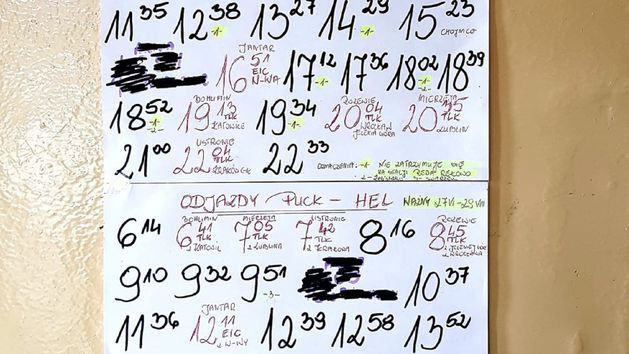 11 35 12 38 -1- 13 27 14 29 -1- 15 23 CHOJNICE
JANTAR
16 51 EIC 17 12 -1- 17 36 18 02 -1- 18 39
18 52 -1- BOHUMIN 19 13 TLK KATOWICE 19 34 -1- ROZEWIE 20 04 TLK WROCŁAW JELENIA GÓRA MIERZEJA 20 TLK LUBLIN
21 00 USTRONIE 22 04 TLK KRAKÓW 22 33 OZNACZENIA: -1- NIE ZATRZYMUJE SIĘ
NA STACJI REDA REKOWO
ODJAZDY PUCK - HEL WAŻNY
6 14 BOHUMIN 6 41 TLK Z KATOWIC MIERZEJA 7 05 TLK Z LUBLINA USTRONIE 7 42 TLK Z KRAKOWA 8 16 ROZEWIE 8 45 TLK
9 10 9 32 9 51 -3- 10 37
11 36 JANTAR 12 11 EIC Z W-WY 12 39 12 58 13 52